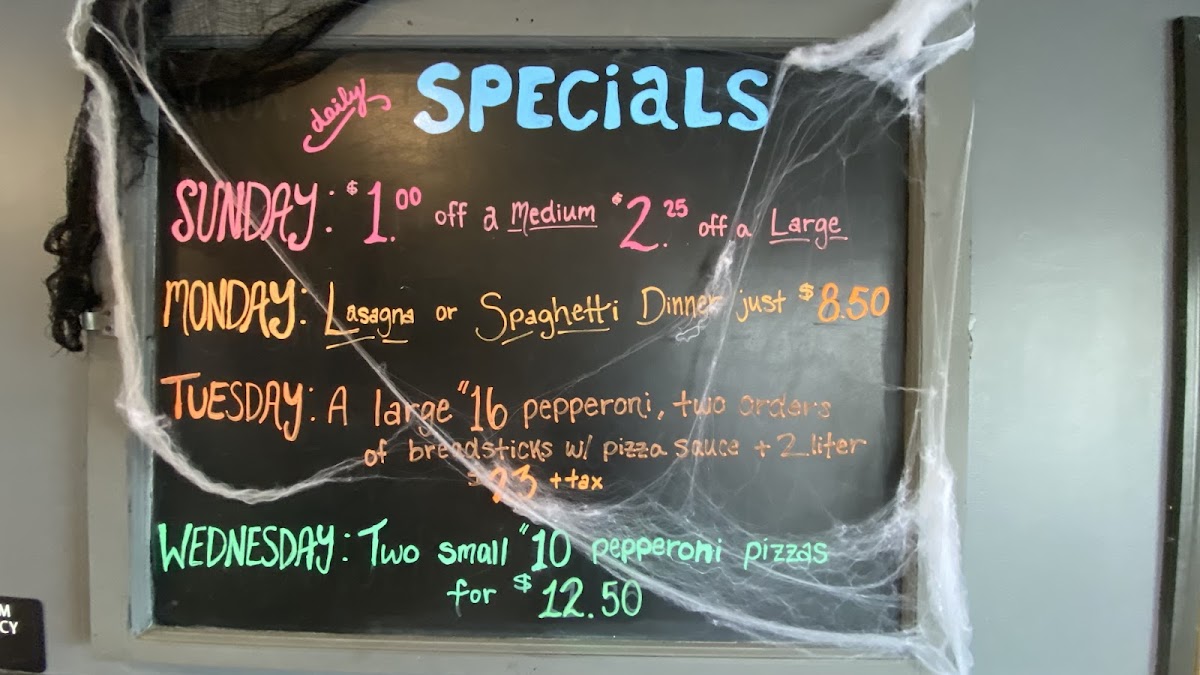 daily SPECiaLS
SUNDAY: $1.00 off a Medium $2.25 off a Large
MONDAY: Lasagna or Spaghetti Dinner just $8.50
TUESDAY: A large "16 pepperoni, two orders
of breadsticks w/ pizza sauce + 2 liter
23 +tax
WEDNESDAY: Two small "10 pepperoni pizzas
for $12.50
M
CY